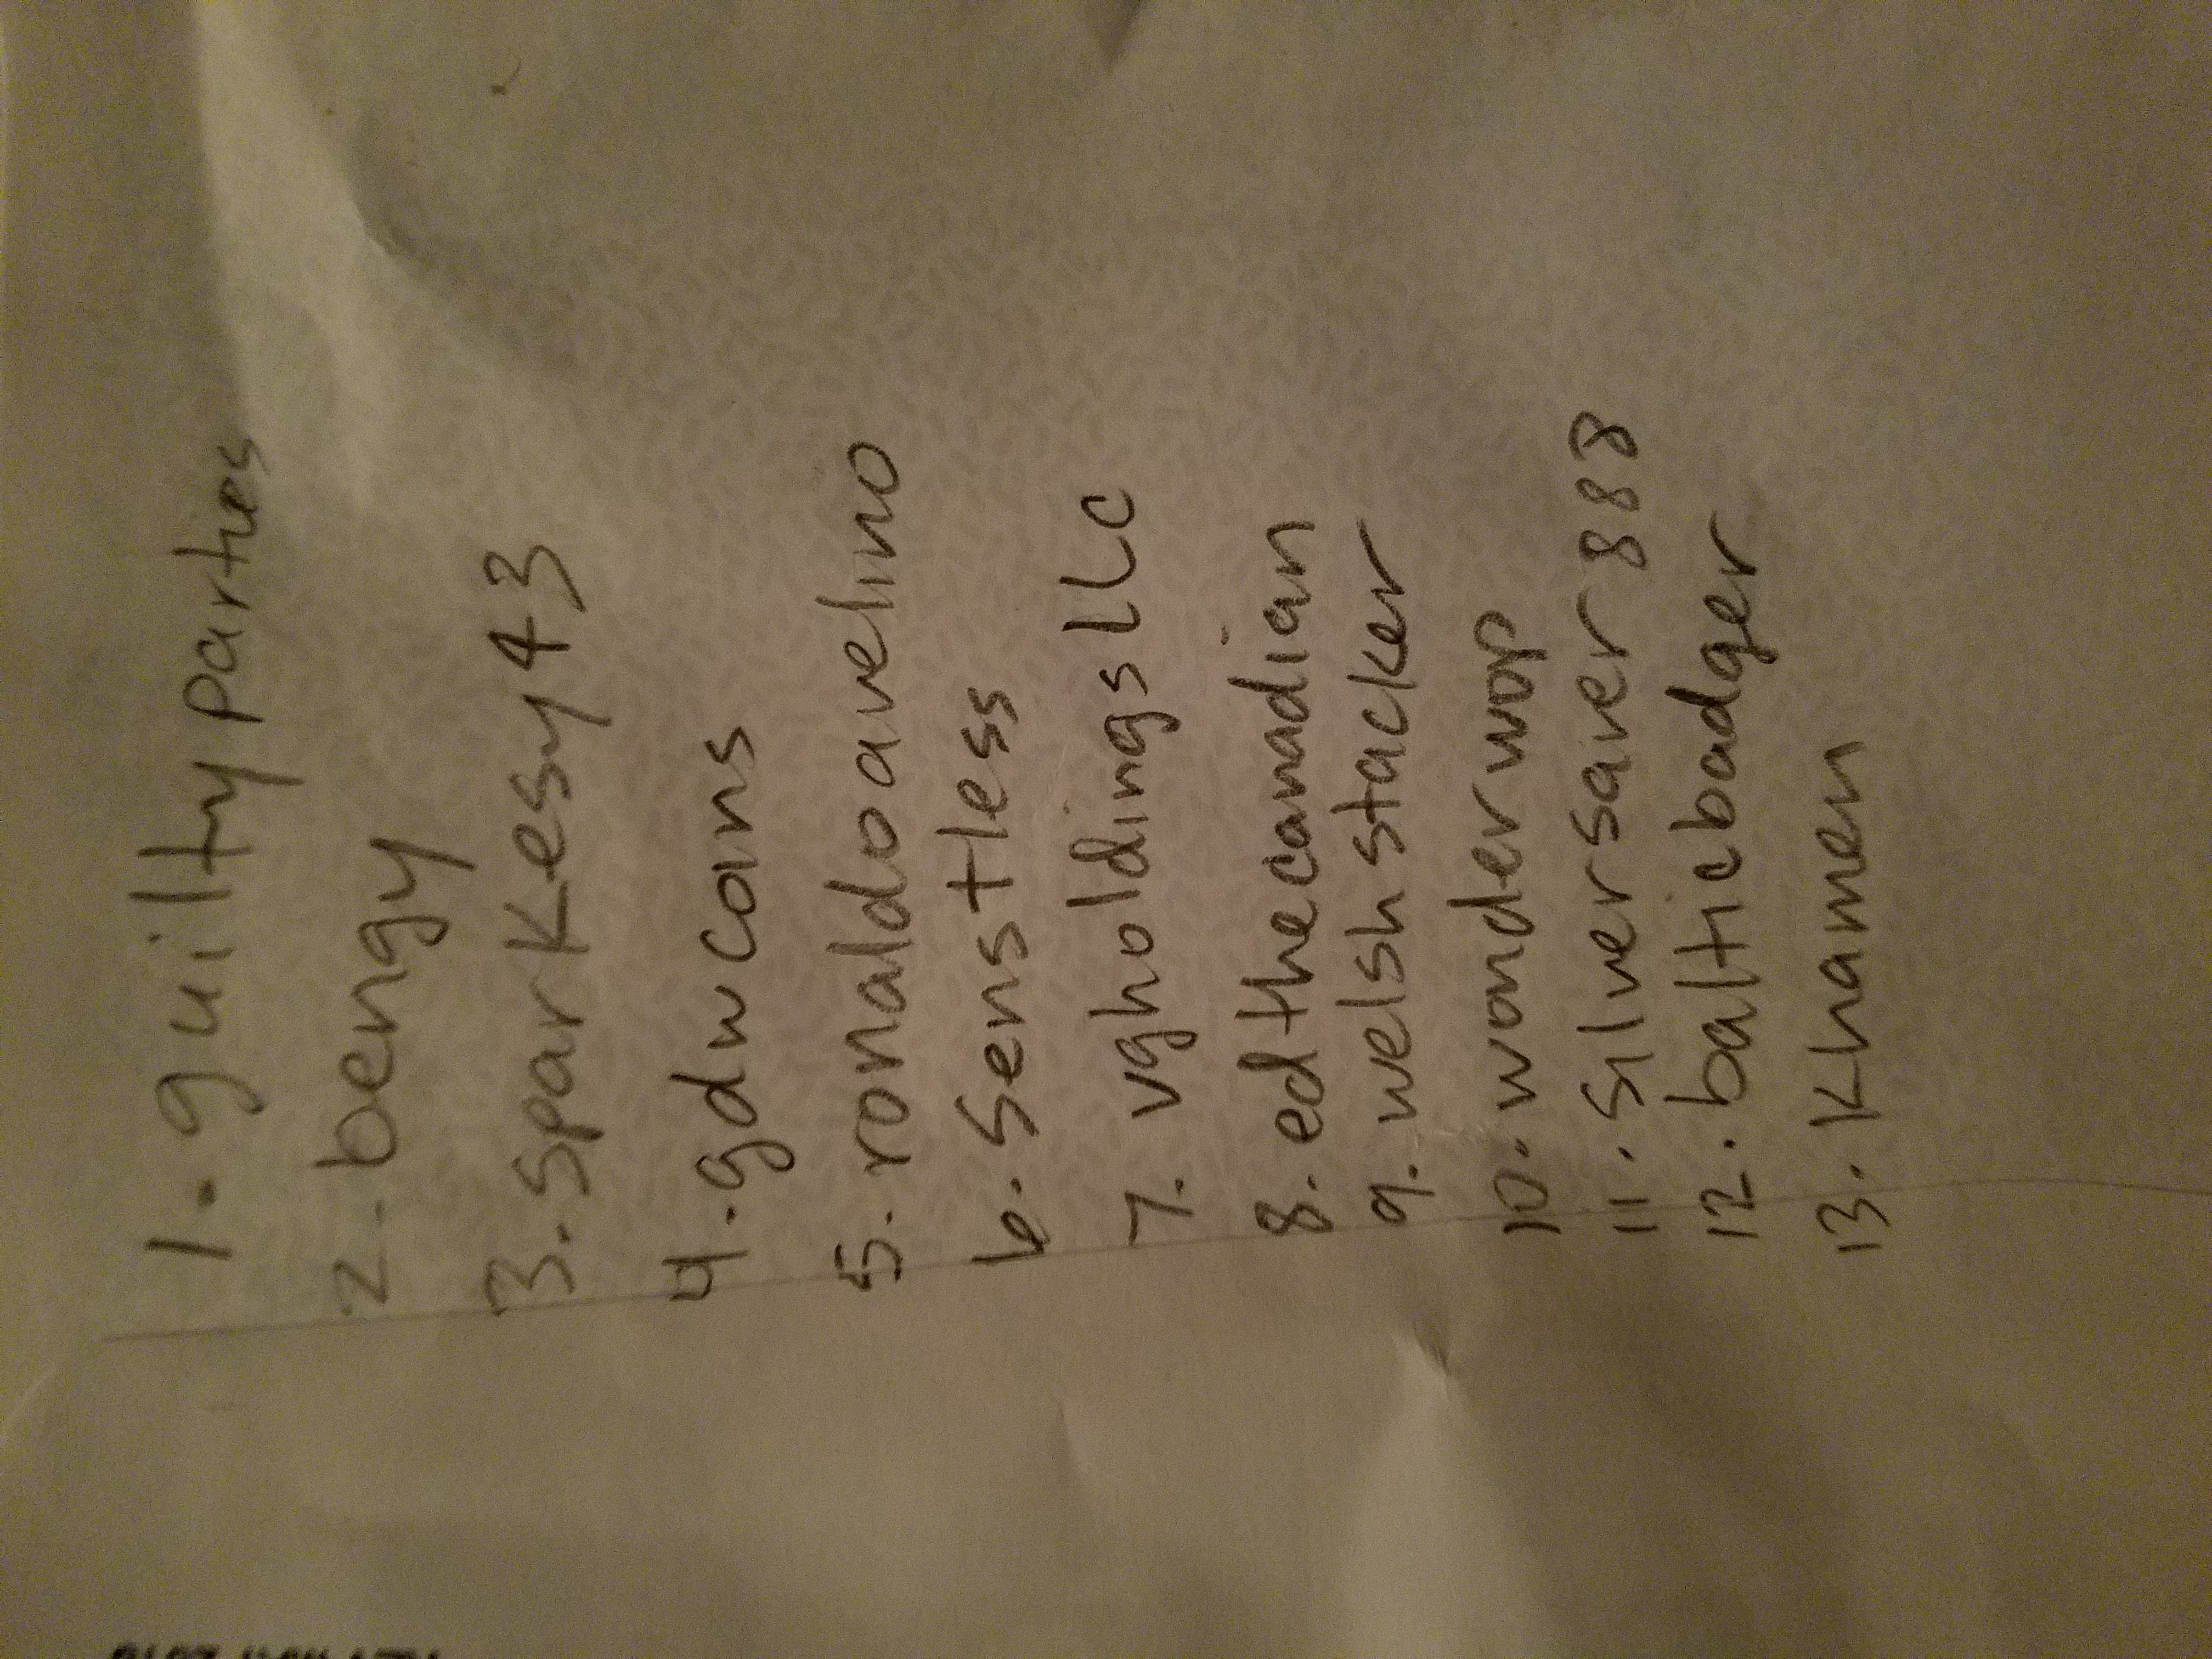 1. guiltyparties
2. bengy
3. sparkesy43
4. gdwcons
5. ronaldoavelino
6. Senstless
7. vgholdingsLLC
8. edthecanadian
9. welshstacker
10. wonderwop
11. Silversaver888
12. balticbadger
13. Khamen